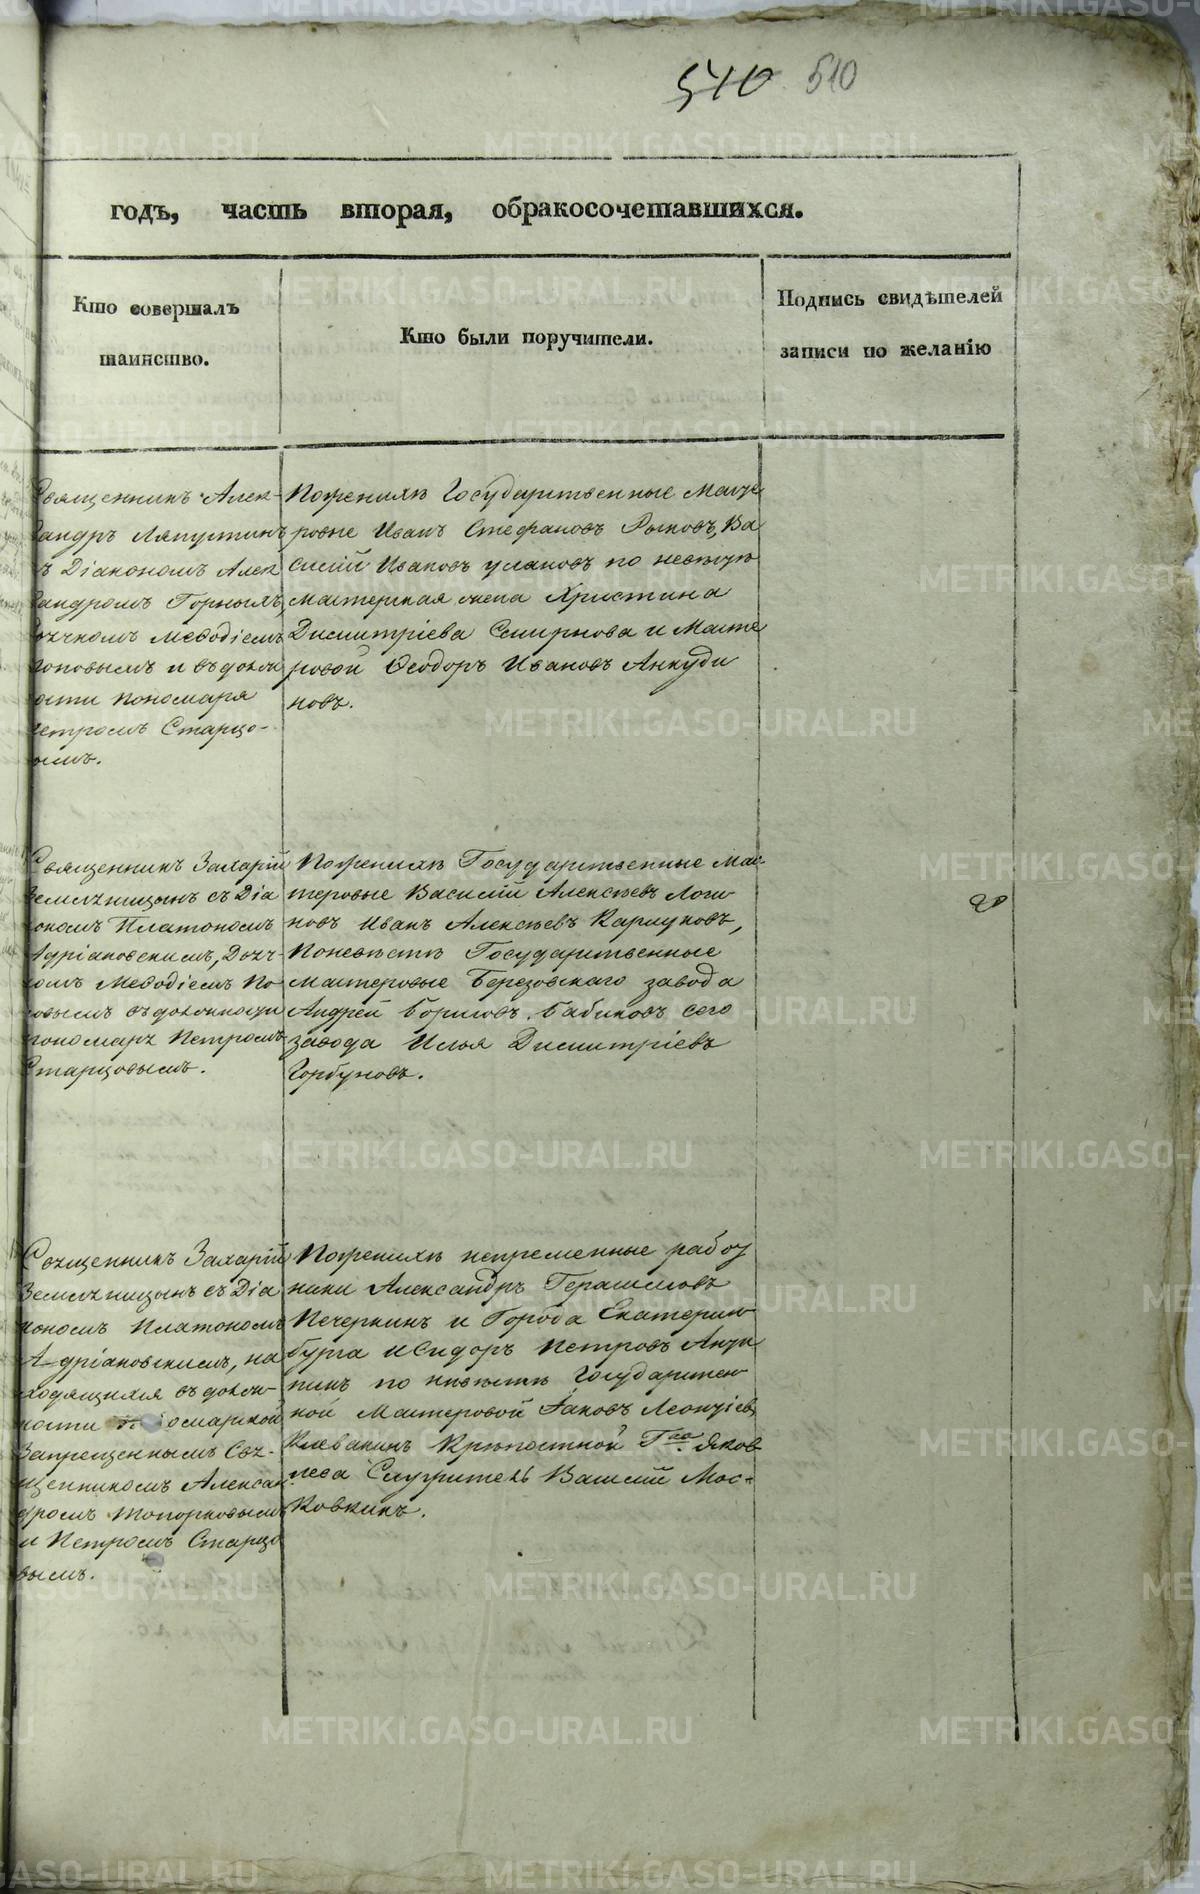 540 510
годъ, часть вторая, обракосочетавшихся.
Кто совершалъ
таинство.
Кто были поручители.
Подпись свидѣтелей
записи по желанію
Священникъ Алек-
сандръ Ляпустинъ
съ Діакономъ Алек
сандромъ Горнымъ,
Дьячкомъ Меѳодіемъ
Поповымъ и въ должн
ости пономаря
Петромъ Старцо-
вымъ.
По женихѣ Государственные Масте
ровые Иванъ Стефановъ Рыковъ, Ва
силій Ивановъ Улановъ по невѣстѣ
мастерская жена Христина
Димитріева Смирнова и Масте
ровой Ѳеодоръ Ивановъ Анкуди
новъ.
Священникъ Захарій
Земляницынъ съ Діа
кономъ Платономъ
Адріановскимъ, Дьяч-
комъ Меѳодіемъ По
повымъ въ должности
пономаря Петромъ
Старцовымъ.
По женихѣ Государственные Мас-
теровые Василій Алексѣевъ Логи
новъ Иванъ Алексѣевъ Карлуковъ,
По невѣстѣ Государственные
мастеровые Березовскаго завода
Андрей Борисовъ Бабиковъ сего
завода Илья Димитріевъ
Горбуновъ.
Священникъ Захарій
Земляницынъ съ Діа
кономъ Платономъ
Адріановскимъ, на
ходящимся въ долж-
ности пономарской
Запрещеннымъ Свя-
щенникомъ Алексан
дромъ Топорковымъ
и Петромъ Старцо
вымъ.
По женихѣ непременные работ
ники Александръ Герасимовъ
Печеркинъ и Города Екатерин
бурга Исидоръ Петровъ
по невѣстѣ Государствен
ной Мастеровой Іаковъ Леонтіевъ
Клевакинъ Крѣпостной Г-на Яков
лева Служитель Василій Мос-
ковкинъ.
METRIKI.GASO-URAL.RU